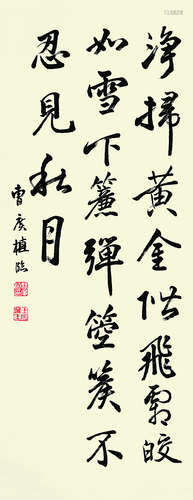 浄掃黄金階飛霜皎
如雪下簾彈箜篌不
忍見秋月
曹广植臨